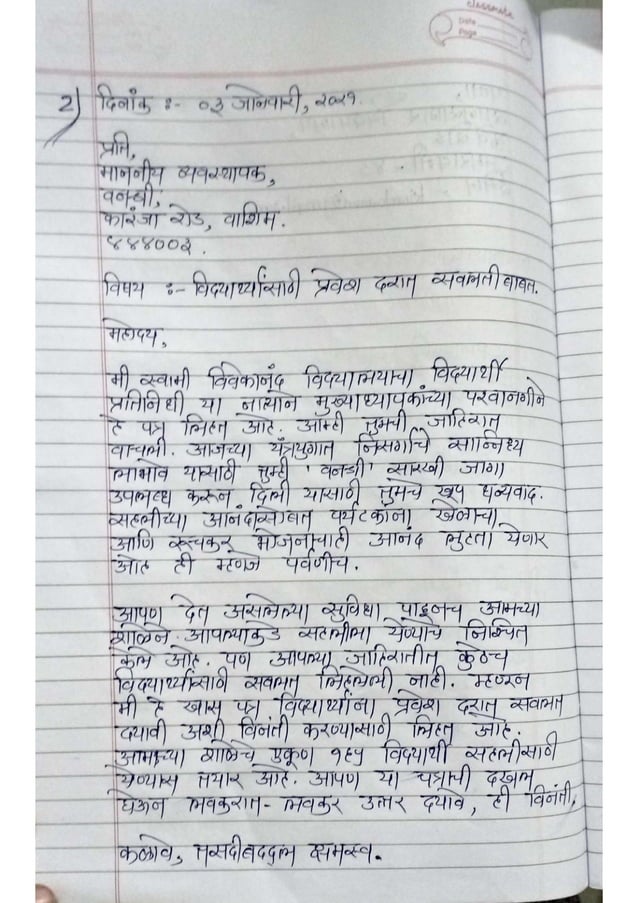 classmate
Date
Page
2) दिनांक :- ०३ जानेवारी, २०२१.
प्रति,
माननीय व्यवस्थापक,
वनश्री,
कारंजा रोड, वाशिम.
४४४००३.
विषय :- विद्यार्थ्यांसाठी प्रवेश दरात सवलतीबाबत.
महोदय,
मी स्वामी विवेकानंद विद्यालयाचा विद्यार्थी
प्रतिनिधी या नात्याने मुख्याध्यापकांच्या परवानगीने
हे पत्र लिहित आहे. आम्ही तुमची जाहिरात
वाचली. आजच्या यंत्रयुगात निसर्गाचे सान्निध्य
लाभावे यासाठी तुम्ही 'वनश्री' सारखी जागा
उपलब्ध करून दिली यासाठी तुमचे खूप धन्यवाद.
सहलीच्या आनंदासोबत पर्यटकांना खेळाचा
आणि रूचकर भोजनाचाही आनंद लुटता येणार
आहे ही म्हणजे पर्वणीच.
आपण देत असलेल्या सुविधा पाहूनच आमच्या
शाळेने आपल्याकडे सहलीला येण्याचे निश्चित
केले आहे. पण आपल्या जाहिरातीत कुठेच
विद्यार्थ्यांसाठी सवलत लिहिलेली नाही. म्हणून
मी हे खास पत्र विद्यार्थ्यांना प्रवेश दरात सवलत
द्यावी अशी विनंती करण्यासाठी लिहित आहे.
आमच्या शाळेचे एकूण १६५ विद्यार्थी सहलीसाठी
येण्यास तयार आहे. आपण या पत्राची दखल
घेऊन लवकरात-लवकर उत्तर द्यावे, ही विनंती,
कळावे, तसदीबद्दल क्षमस्व.